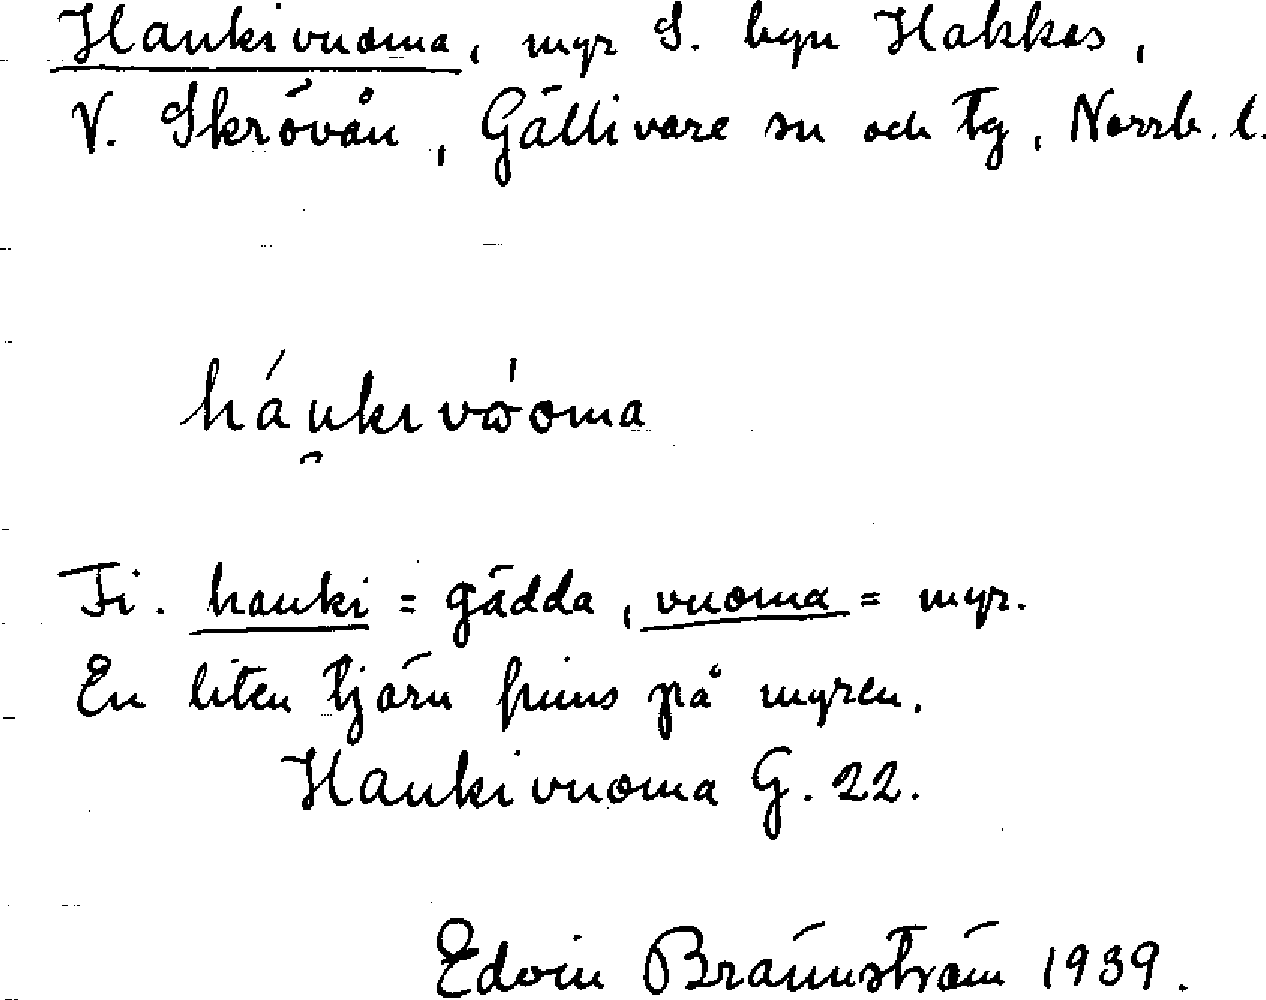 Haukivuoma, myr S. byn Hakkas,
V. Skrövån, Gällivare sn och tg, Norrb. l.
háu̯kivω̍oma
Fi. hauki = gädda, vuoma = myr.
En liten tjärn finns på myren.
Haukivuoma G. 22.
Edvin Brännström 1939.